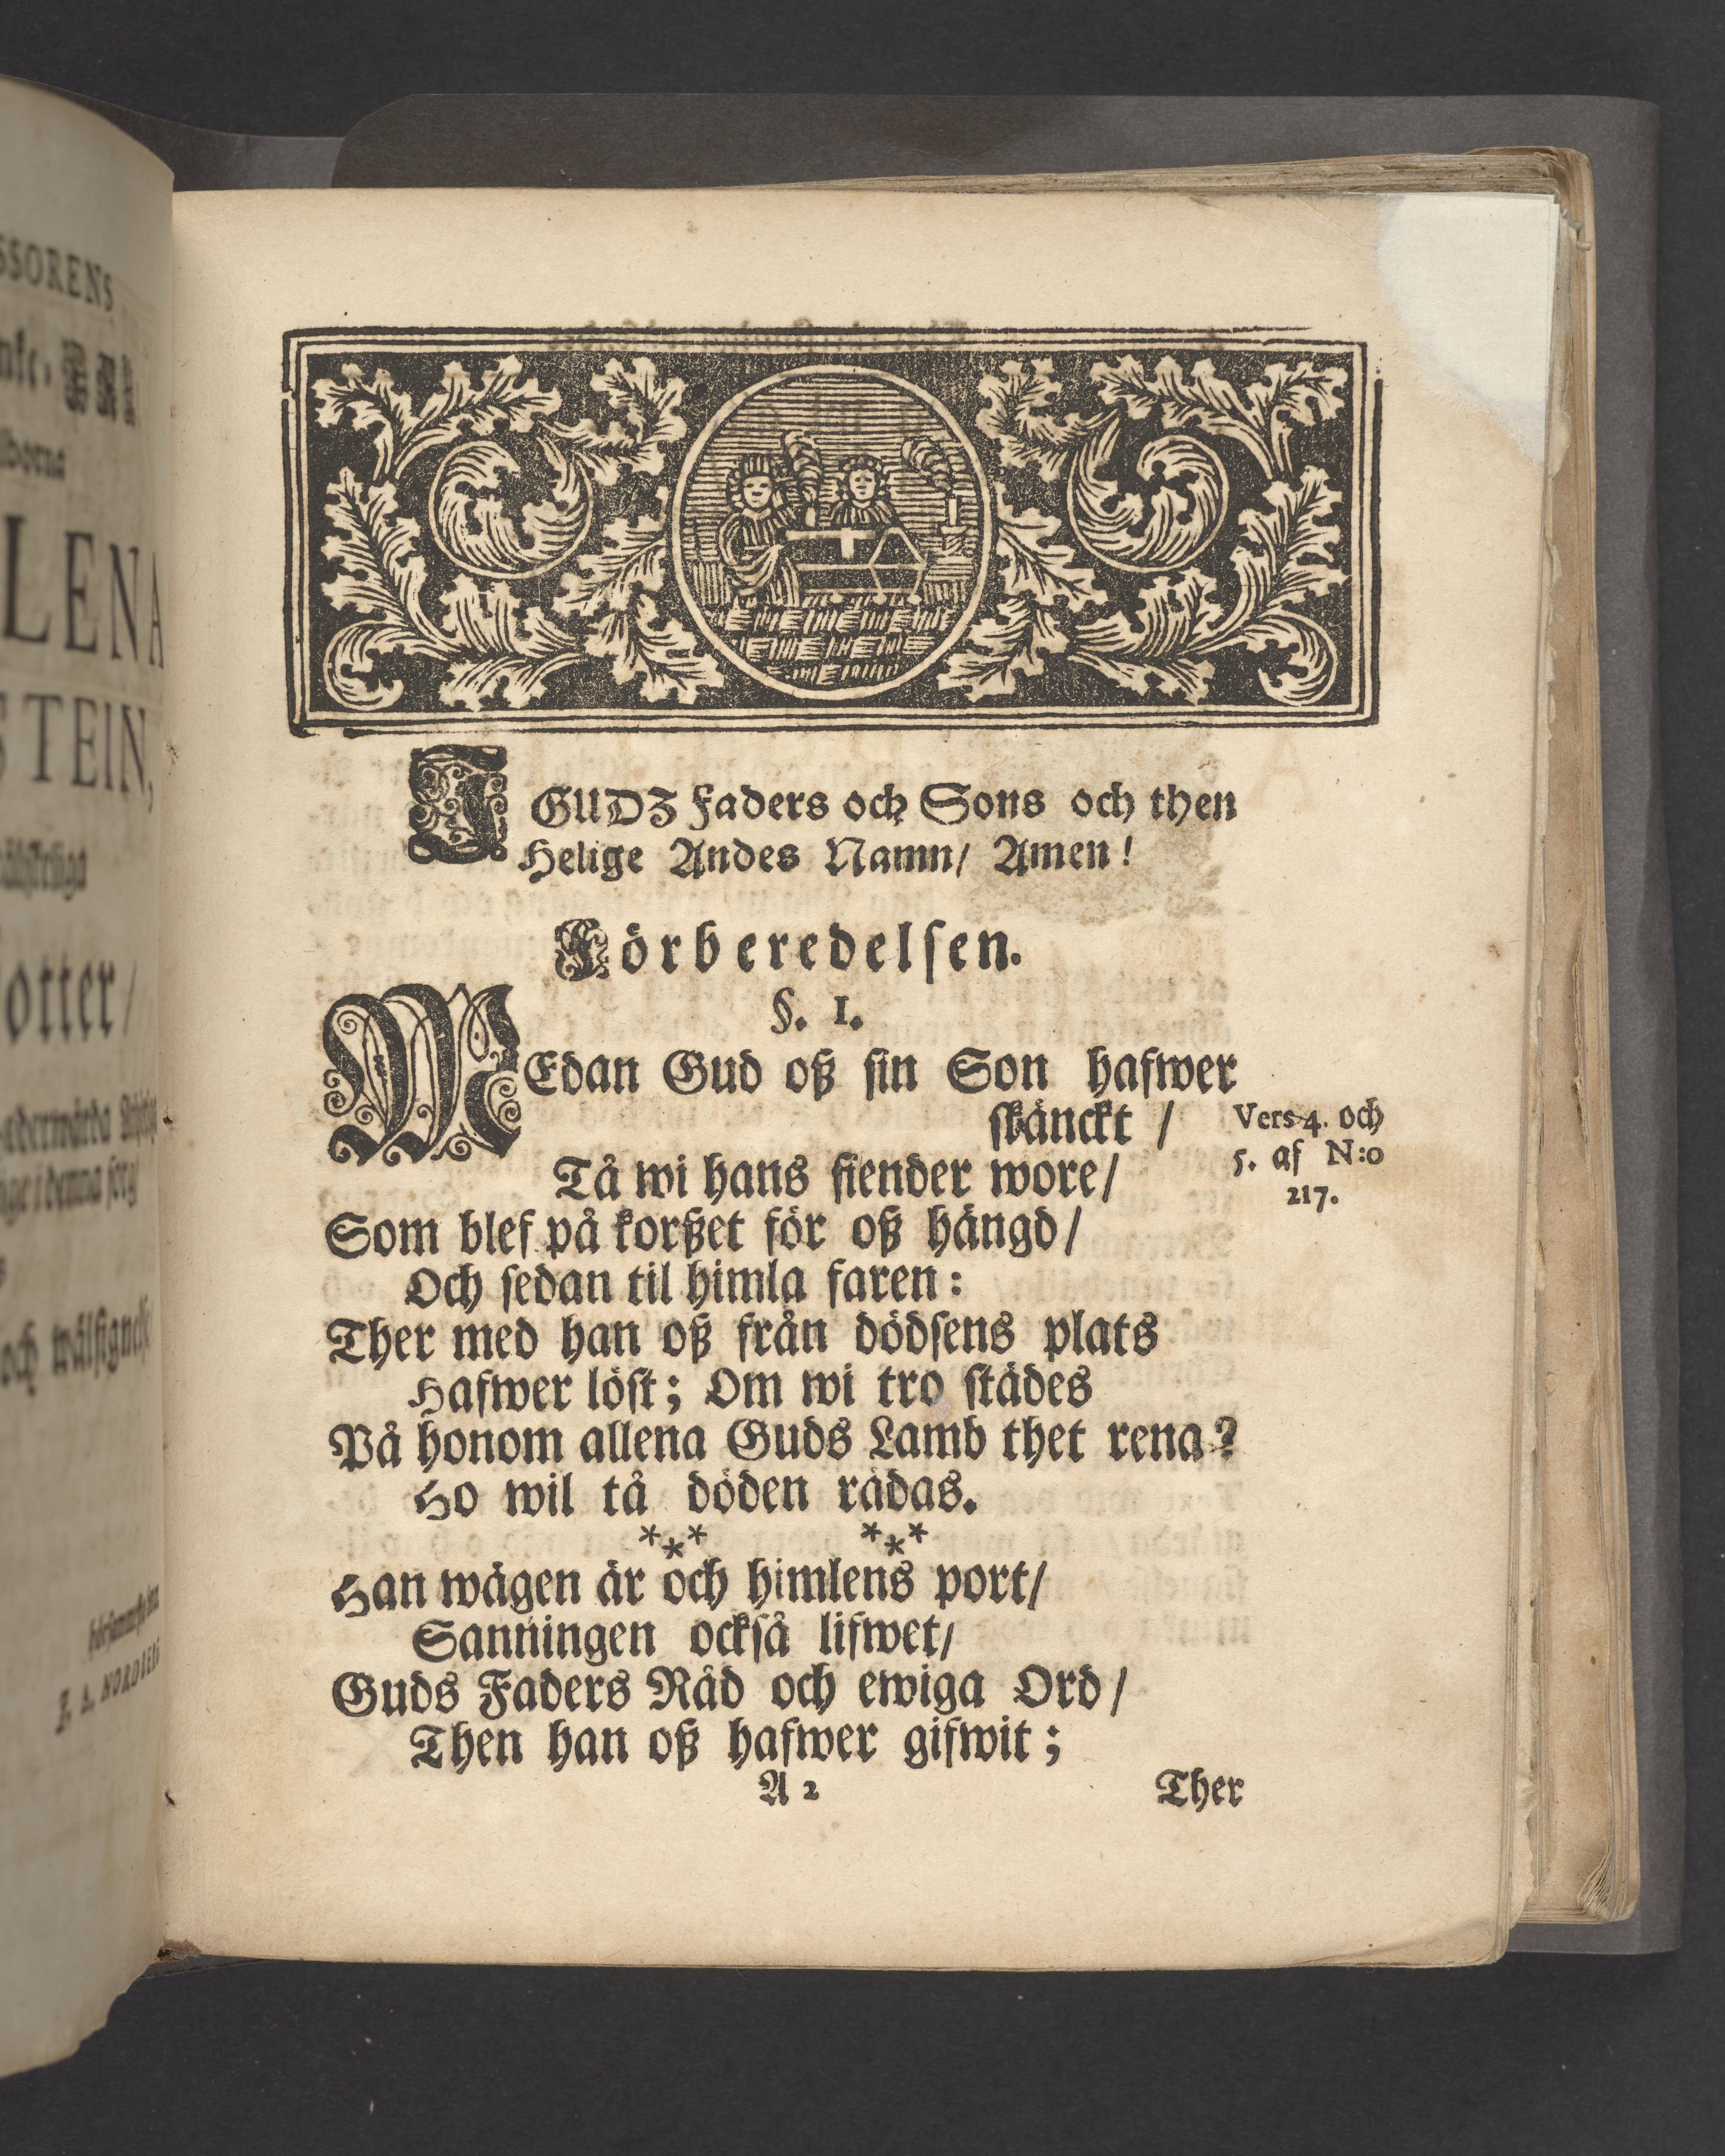 SSORENS
LENA
STEIN,
otter/
och wälsignelse
I GUDZ Faders och Sons och then
Helige Andes Namn/ Amen!
Förberedelsen.
§. 1.
MEdan Gud oß sin Son hafwer
skänckt /
Tå wi hans fiender wore/
Som blef på korßet för oß hängd/
Och sedan til himla faren:
Ther med han oß från dödsens plats
Hafwer löst; Om wi tro städes
På honom allena Guds Lamb thet rena?
Ho wil tå döden rädas.
*** ***
Han wägen är och himlens port/
Sanningen också lifwet/
Guds Faders Råd och ewiga Ord/
Then han oß hafwer gifwit;
A 2
Ther
Vers 4. och
5. af N:o
217.